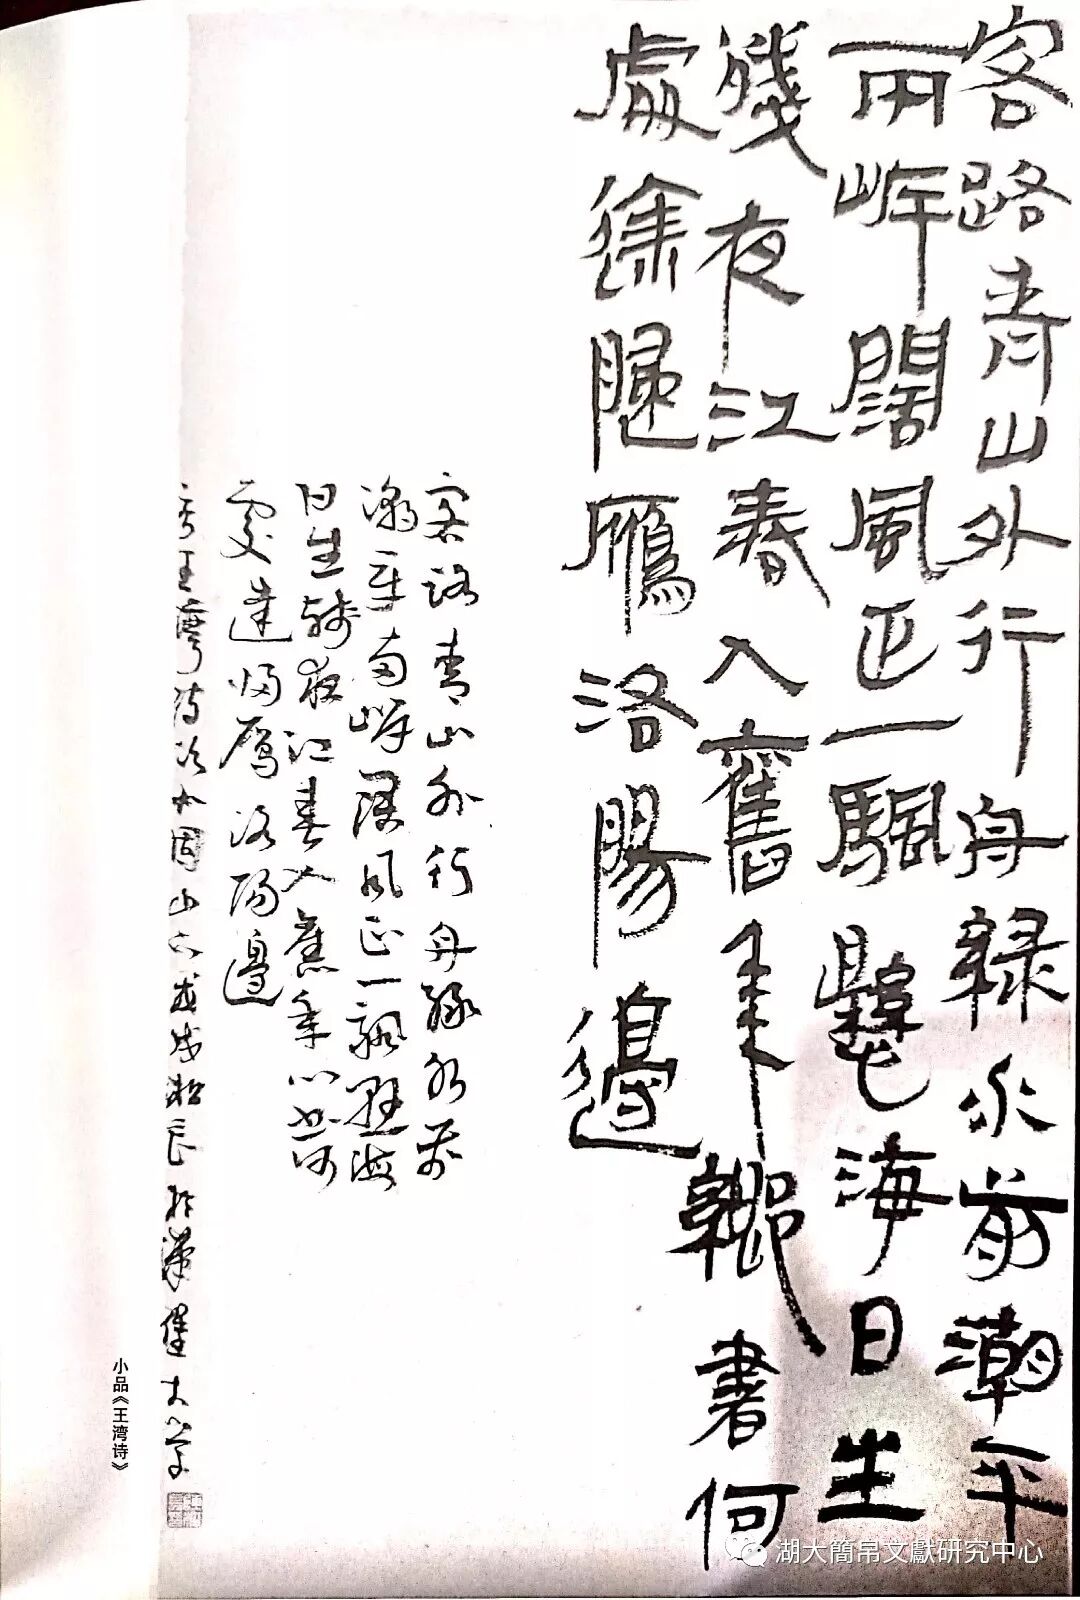 客路青山外行舟綠水前潮平
兩岸闊風正一颿懸海日生
殘夜江春入舊年鄉書何
處達歸鴈洛陽邊
客路青山外行舟綠水前
潮平兩岸闊風正一颿懸海
日生殘夜江春入舊年鄉書何
處達歸鴈洛陽邊
王灣詩次北固山下戊戌
小品《王湾诗》
湖大簡帛文獻研究中心